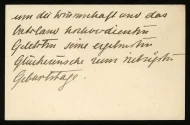 um die Wissenschaft und das
Vaterland hochverdienten
Gelehrten seine ergebensten
Glückwünsche zum siebzigsten
Geburtstage.